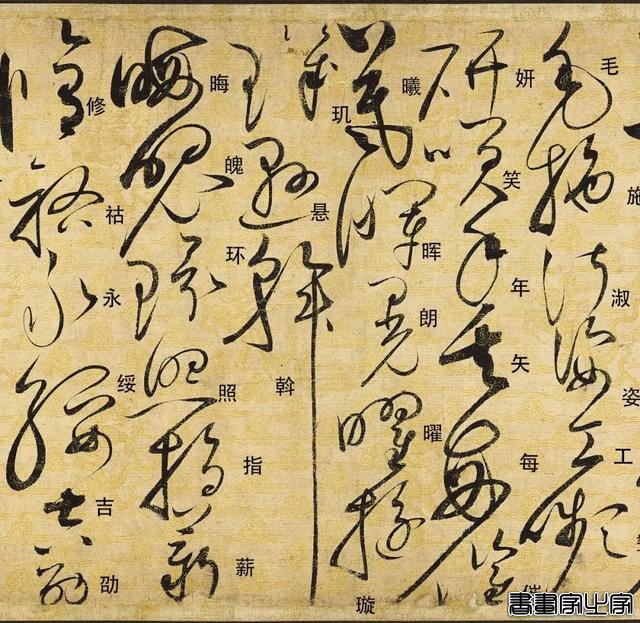 毛施淑姿工
妍笑年矢每催
曦晖朗曜璇
玑悬斡
晦魄环照指薪
修祜永绥吉劭
書畫家之家